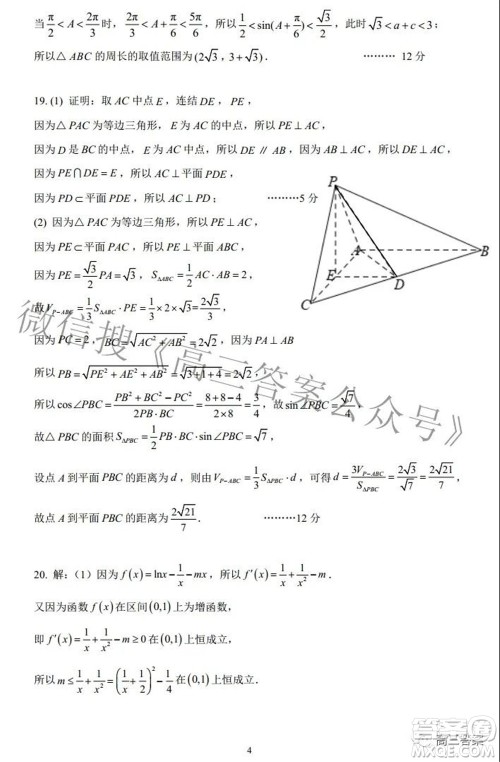 当 π/2 < A < 2π/3 时， 2π/3 < A + π/6 < 5π/6 ，所以 1/2 < sin(A + π/6) < √3/2 ，此时 √3 < a + c < 3；
所以△ ABC 的周长的取值范围为 (2√3 , 3 + √3) . ……… 12 分
19. (1) 证明：取 AC 中点 E ，连结 DE ， PE ，
因为△ PAC 为等边三角形， E 为 AC 的中点，所以 PE ⊥ AC ，
因为 D 是 BC 的中点， E 为 AC 的中点，所以 DE ∥ AB ，因为 AB ⊥ AC ，所以 DE ⊥ AC ，
因为 PE ∩ DE = E ，所以 AC ⊥ 平面 PDE ，
因为 PD ⊂ 平面 PDE ，所以 AC ⊥ PD ； ………5 分
(2) 因为△ PAC 为等边三角形，所以 PE ⊥ AC ，
因为平面 PAC ⊥ 平面 ABC ，所以 PE ⊥ 平面 ABC ，
因为 PE = √3/2 PA = √3 ， S△ABC = 1/2 AC · AB = 2 ，
故 V_P−ABC = 1/3 S△ABC · PE = 1/3 × 2 × √3 = 2√3/3 ，
因为 PC = 2 ， BC = √(AC² + AB²) = 2√2 ，因为 PA ⊥ AB
所以 PB = √(PE² + AE² + AB²) = √(3+1+4) = 2√2 ，
所以 cos∠PBC = (PB² + BC² − PC²)/(2PB · BC) = (8+8−4)/(2×8) = 3/4 ，故 sin∠PBC = √7/4 ，
故△ PBC 的面积 S△PBC = 1/2 PB · BC · sin∠PBC = √7 ，
设点 A 到平面 PBC 的距离为 d ，则由 V_P−ABC = 1/3 S△PBC · d ，可得 d = 3V_P−ABC/S△PBC = 2√3/√7 = 2√21/7 ，
故点 A 到平面 PBC 的距离为 2√21/7 . ………12 分
P
A
B
E
D
C
20. 解：（1）因为 f(x) = lnx − 1/x − mx ，所以 f′(x) = 1/x + 1/x² − m .
又因为函数 f(x) 在区间 (0,1) 上为增函数，
即 f′(x) = 1/x + 1/x² − m ≥ 0 在 (0,1) 上恒成立，
所以 m ≤ 1/x + 1/x² = (1/x + 1/2)² − 1/4 在 (0,1) 上恒成立．
4
微信搜《高三答案公众号》
高三答案
答案圈
MXQE.COM